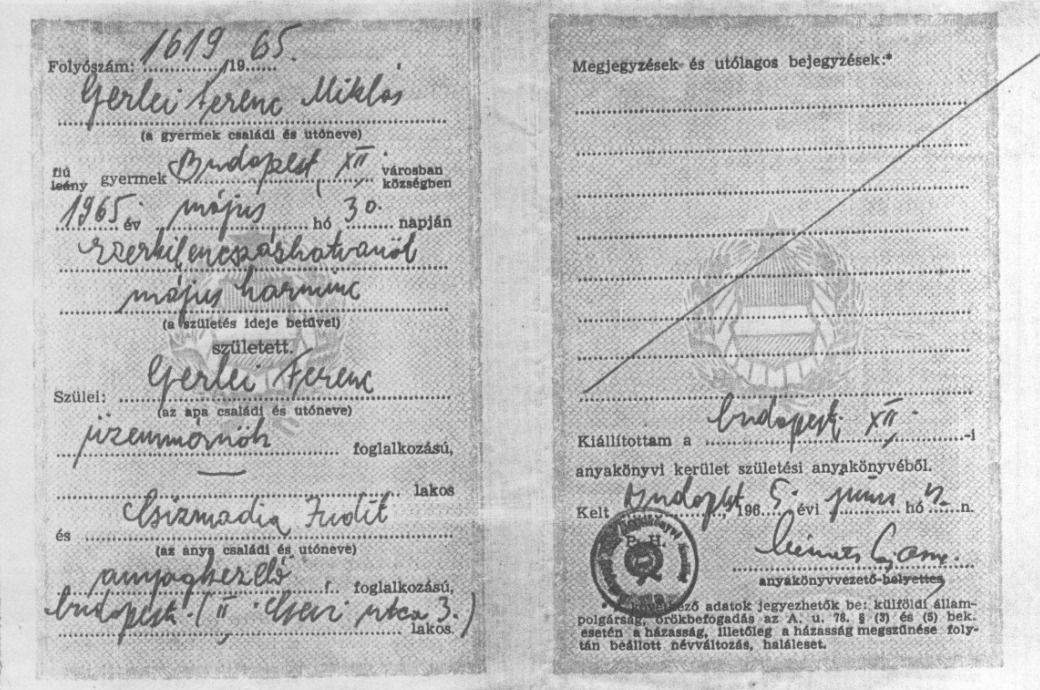 Folyószám: 1619/1965.
Gerlei Ferenc Miklós
(a gyermek családi és utóneve)
fiú
leány gyermek Budapest, XII, városban
községben
1965 év május hó 30. napján
ezerkilencszázhatvanöt
május harminc
(a születés ideje betűvel)
született.
Szülei: Gerlei Ferenc
(az apa családi és utóneve)
üzemmérnök foglalkozású,
lakos
és Csizmadia Judit
(az anya családi és utóneve)
anyagkezelő foglalkozású,
budapesti (II. Csevi utca 3.) lakos.
Megjegyzések és utólagos bejegyzések:*
Kiállítottam a budapesti XII. -i
anyakönyvi kerület születési anyakönyvéből.
Kelt Budapest, 1965. évi június hó 2. n.
P. H.
anyakönyvvezető-helyettes
* A következő adatok jegyezhetők be: külföldi állam-
polgárság, örökbefogadás az A. u. 78. § (3) és (5) bek.
esetén a házasság, illetőleg a házasság megszűnése foly-
tán beállott névváltozás, haláleset.